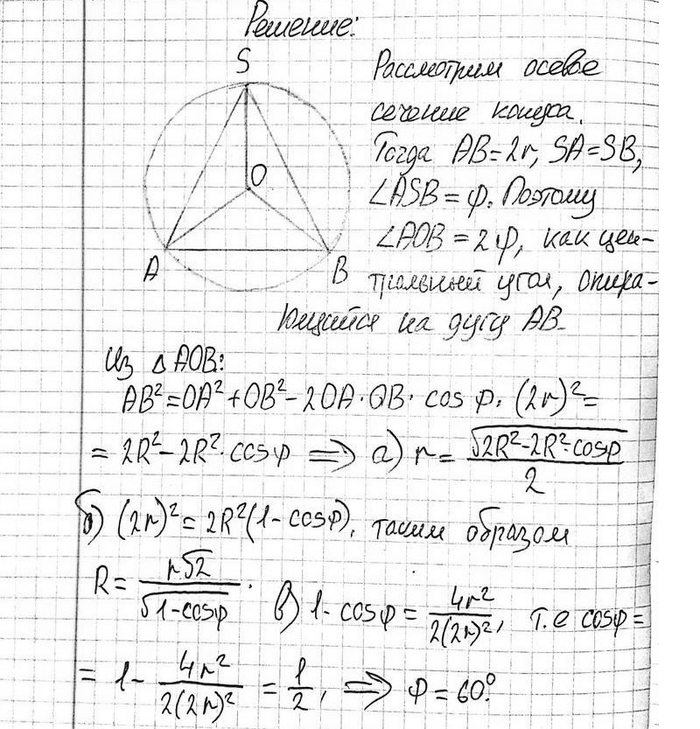 Решение:
S
O
A
B
Рассмотрим осевое
сечение конуса.
Тогда AB=2r, SA=SB,
∠ASB=φ. Поэтому
∠AOB=2φ, как цен-
тральный угол, опира-
ющийся на дугу AB
Из △AOB:
AB²=OA²+OB²-2OA·OB·cosφ. (2r)²=
=2R²-2R²·cosφ ⟹ а) r=√(2R²-2R²·cosφ)/2
б) (2r)²=2R²(1-cosφ), таким образом
R=r√2/√(1-cosφ). в) 1-cosφ=4r²/2(2r)², т.е cosφ=
=1-4r²/2(2r)²=1/2, ⟹ φ=60°.